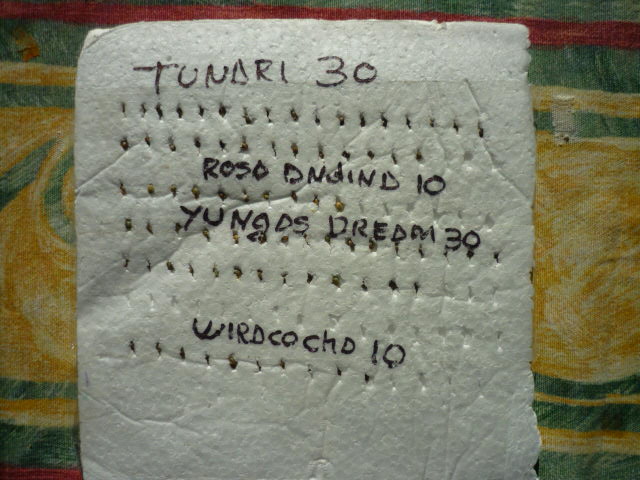 TUNARI 30
ROSA ANDINA 10
YUNGAS DREAM 30
WIRACOCHA 10